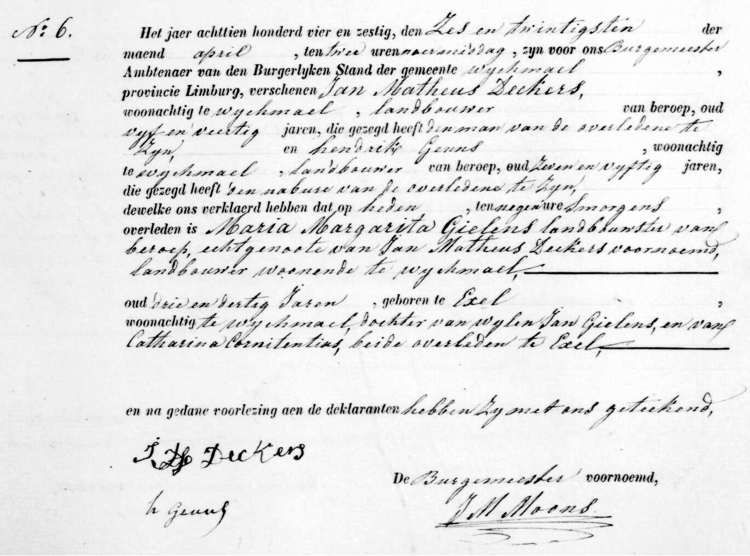 N.º 6.
Het jaer achttien honderd vier en zestig, den Zes en twintigsten der
maend april , ten twee uren naermiddag , zyn voor ons Burgemeester
Ambtenaer van den Burgerlyken Stand der gemeente wychmael ,
provincie Limburg, verschenen Jan Matheus Deckers,
woonachtig te wychmael , landbouwer van beroep, oud
vyf en veertig jaren, die gezegd heeft den man van de overledene te
Zyn, en hendrik Geuns , woonachtig
te wychmael , landbouwer van beroep, oud Zeven en vyftig jaren,
die gezegd heeft den nabure van de overledene te Zyn,
dewelke ons verklaerd hebben dat op heden , ten negen ure Smorgens ,
overleden is Maria Margarita Gielens landbouwster van
beroep, echtgenoote van Jan Matheus Deckers voornoemd,
landbouwer woonende te wychmael,
oud drie en dertig Jaren , geboren te Exel ,
woonachtig te wychmael, dochter van wylen Jan Gielens, en van
Catharina Cornitentius, beide overleden te Exel,
en na gedane voorlezing aen de deklaranten hebben Zy met ons geteekend,
J M Deckers
De Burgemeester voornoemd,
h Geuns
J M Moons.